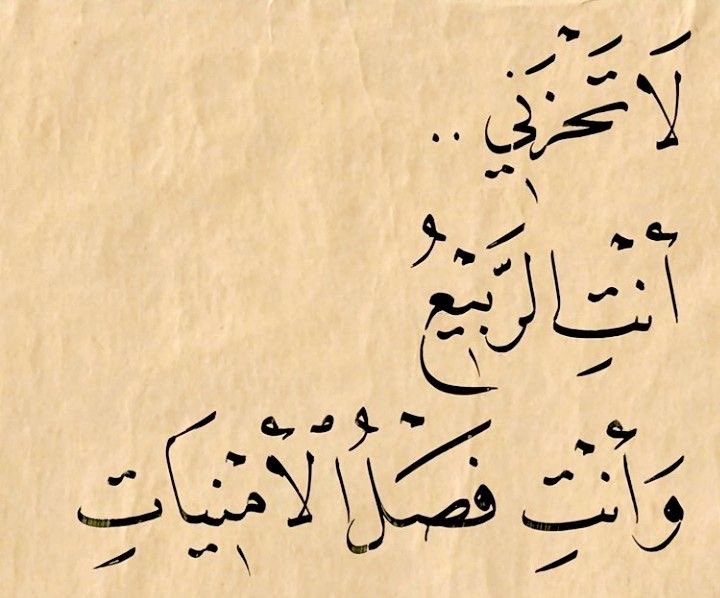 لَا تَحْزَنِي ..
أَنْتِ الرَّبِيْعُ
وَأَنْتِ فَصْلُ الْأُمْنِيَاتِ